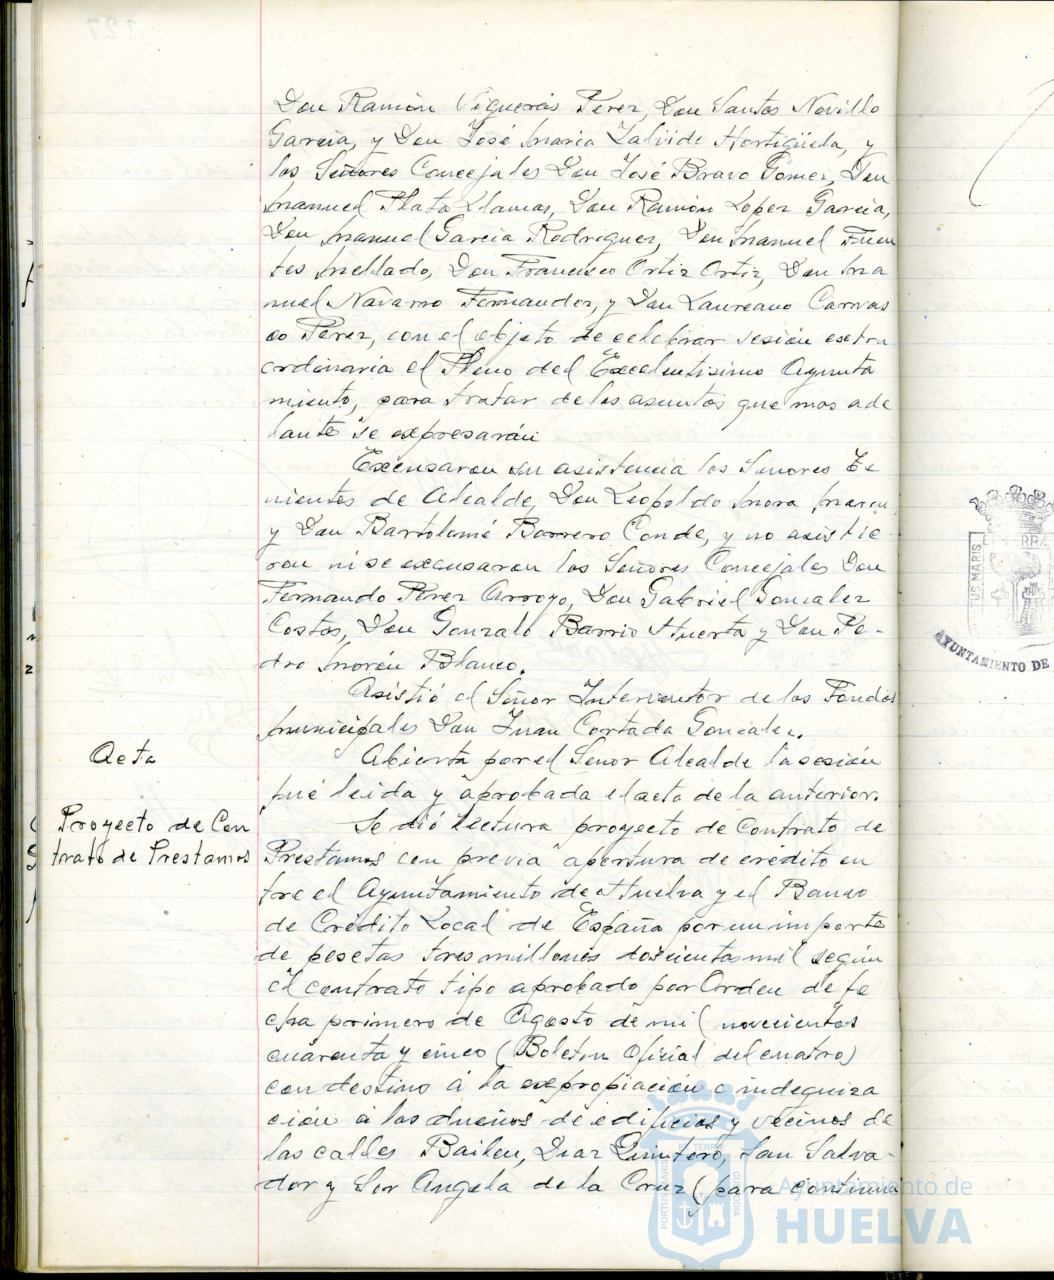 Don Ramón Vigueras Perez, Don Santos Novillo
Garcia, y Don José Maria Zalvide Hortigüela, y
los Señores Concejales Don José Bravo Gomez, Don
Manuel Plata Llamas, Don Ramón Lopez Garcia,
Don Manuel Garcia Rodriguez, Don Manuel Fuen
tes Mellado, Don Francisco Ortiz Ortiz, Don Ma
nuel Navarro Fernandez, y Don Laureano Carras
co Perez, con el objeto de celebrar sesión extra
ordinaria el Pleno del Excelentisimo Ayunta
miento, para tratar de los asuntos que mas ade
lante se expresarán
Excusaron su asistencia los Señores Te-
nientes de Alcalde, Don Leopoldo Mora Marin,
y Don Bartolomé Borrero Conde, y no asistie-
ron ni se excusaron los Señores Concejales Don
Fernando Perez Arroyo, Don Gabriel Gonzalez
Costas, Don Gonzalo Barrio Huerta y Don Pe-
dro Morón Blanco.
Asistió el Señor Interventor de los Fondos
Municipales Don Juan Cortada Gonzalez.
Acta
Abierta por el Señor Alcalde la sesión
fué leida y aprobada el acta de la anterior.
Proyecto de Con
trato de Prestamos
Se dió lectura proyecto de Contrato de
Prestamos con previa apertura de crédito en
tre el Ayuntamiento de Huelva y el Banco
de Crédito Local de España por un importe
de pesetas tres millones doscientas mil según
el contrato tipo aprobado por Orden de fe
cha primero de Agosto de mil novecientos
cuarenta y cinco (Boletin Oficial del cuatro)
con destino á la expropiación e indemniza
ción á los dueños de edificios y vecinos de
las calles Bailen, Diaz Quintero, San Salva-
dor y Sor Angela de la Cruz (para continua
TUS MARIS
AYUNTAMIENTO DE
PORTUS MARIS
ET TERRAE
CUSTODIA
Ayuntamiento de
HUELVA